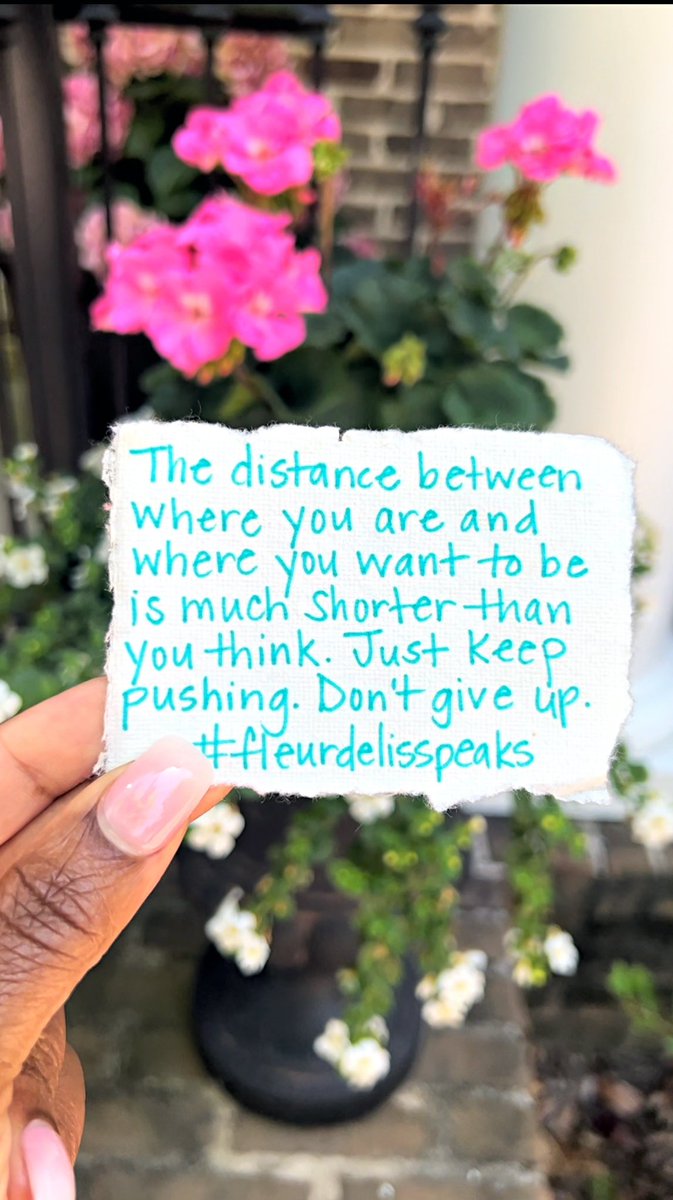 The distance between
where you are and
where you want to be
is much shorter than
you think. Just keep
pushing. Don't give up.
#fleurdelisspeaks